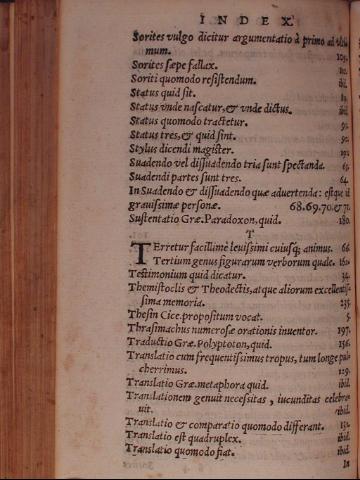 INDEX.
Sorites vulgo dicitur argumentatio à primo ad
mum. 105.
Sorites sæpe fallax. ibi.
Soriti quomodo resistendum. ibi.
Status quid sit.
Status vnde nascatur, & vnde dictus. ibid.
Status quomodo tractetur.
Status tres, & quid sint.
Stylus dicendi magister.
Suadendo vel dissuadendo tria sunt spectanda.
Suadendi partes sunt tres. 64.
In Suadendo & dissuadendo quæ aduertenda: estque
grauissimæ personæ. 68.69.70.&71.
Sustentatio Græ. Paradoxon, quid. 180.
T
TErretur facillimè leuissimi cuiusq; animus. 66
Tertium genus figurarum verborum quale.
Testimonium quid dicatur. 34.
Themistoclis & Theodectis, atque aliorum
sima memoria. 235.
Thesin Cice. propositum vocat. 5.
Thrasimachus numerosæ orationis inuentor. 197.
Traductio Græ. Polyptoton, quid. 156.
Translatio cum frequentissimus tropus, tum longe
cherrimus. 129.
Translatio Græ. metaphora quid. ibid.
Translationem genuit necessitas, iucunditas
uit. ibid.
Translatio & comparatio quomodo differant.
Translatio est quadruplex. ibid.
Translatio quomodo fiat. ibid.